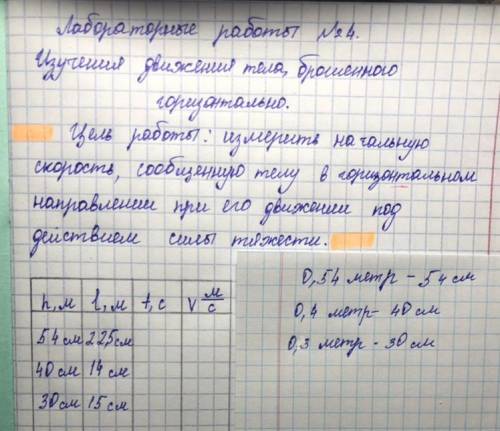 Лабораторные работы №4.
Изучения движения тела, брошенного
горизонтально.
Цель работы: измерить начальную
скорость, сообщенную телу в горизонтальном
направлении при его движении под
действием силы тяжести.
h, м l, м t, с V м/с
54см 225см
40см 14см
30см 15см
0,54 метр - 54 см
0,4 метр - 40 см
0,3 метр - 30 см